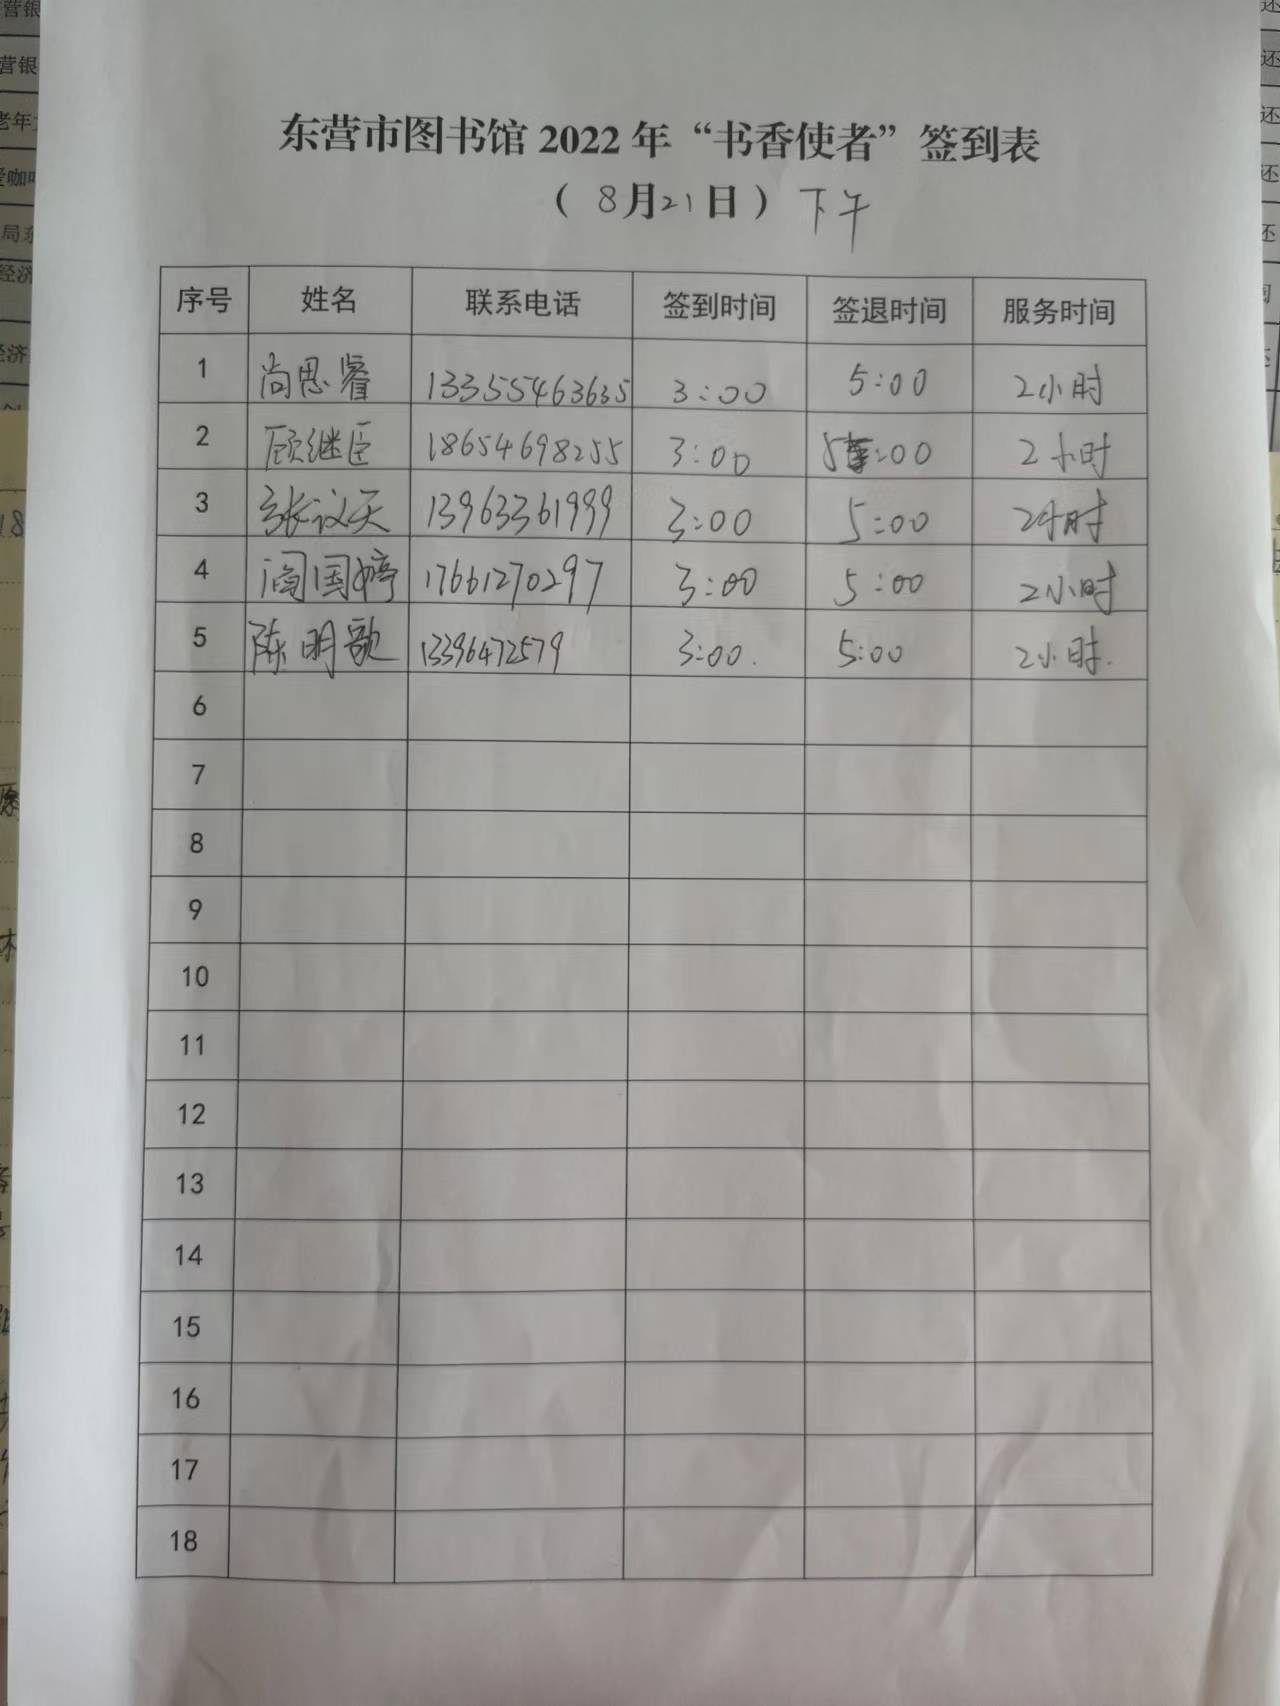 东营市图书馆 2022 年“书香使者”签到表
（ 8月21日 ） 下午
序号 姓名 联系电话 签到时间 签退时间 服务时间
1 尚思睿 13355463635 3:00 5:00 2小时
2 顾继臣 18654698255 3:00 5:00 2小时
3 张议天 13963361999 3:00 5:00 2小时
4 阎国婷 17661270297 3:00 5:00 2小时
5 陈明歌 13396472579 3:00. 5:00 2小时.
6
7
8
9
10
11
12
13
14
15
16
17
18